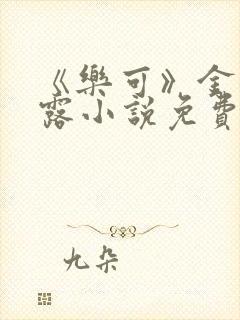 《樂可》金
露小說免費
九朵